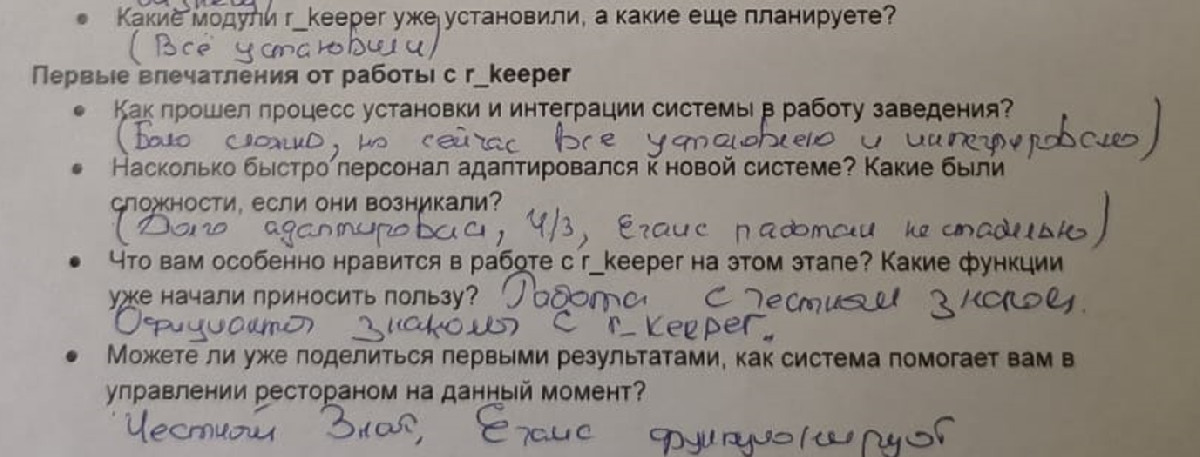 • Какие модули r_keeper уже установили, а какие еще планируете?
(Всё установили)
Первые впечатления от работы с r_keeper
• Как прошел процесс установки и интеграции системы в работу заведения?
(Было сложно, но сейчас все установлено и интегрировано)
• Насколько быстро персонал адаптировался к новой системе? Какие были
сложности, если они возникали?
(Долго адаптировал, Ч/З, Егаис работали не стабильно)
• Что вам особенно нравится в работе с r_keeper на этом этапе? Какие функции
уже начали приносить пользу? Работа с честным знаком.
Официанты знакомы с r_keeper.
• Можете ли уже поделиться первыми результатами, как система помогает вам в
управлении рестораном на данный момент?
Честный Знак, Егаис функционируют